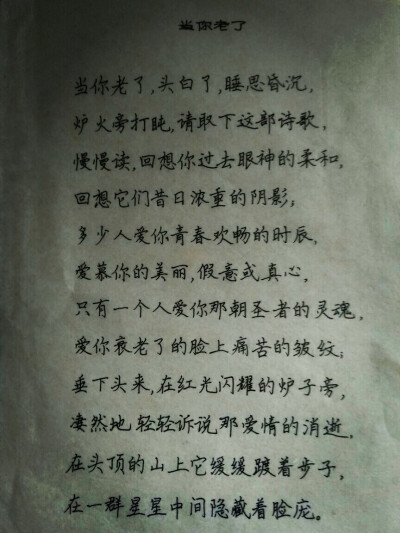 当你老了
当你老了,头白了,睡思昏沉,
炉火旁打盹,请取下这部诗歌,
慢慢读,回想你过去眼神的柔和,
回想它们昔日浓重的阴影;
多少人爱你青春欢畅的时辰,
爱慕你的美丽,假意或真心,
只有一个人爱你那朝圣者的灵魂,
爱你衰老了的脸上痛苦的皱纹;
垂下头来,在红光闪耀的炉子旁,
凄然地轻轻诉说那爱情的消逝,
在头顶的山上它缓缓踱着步子,
在一群星星中间隐藏着脸庞。